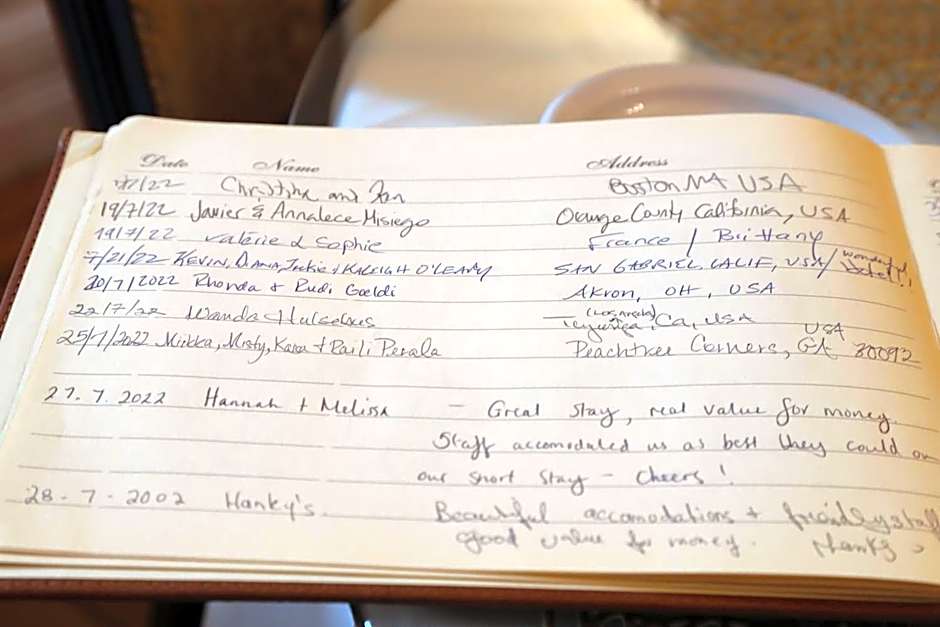 Date Name Address
/22 Christine and Boston MA USA
19/7/22 Javier & Annalece Misiego Orange County California, USA
19/7/22 Valérie & Sophie France / Brittany
7/21/22 KEVIN, DIANA, Jackie & KALEIGH O'LEARY SAN GABRIEL, CALIF, USA/ Wonderful Hotel!!
20/7/2022 Rhonda & Rudi Gaeldi Akron, OH, USA
(Los Angeles)
22/7/22 Wanda Ca, USA
USA
25/7/2022 Miikka, Misty, Kara + Raili Perala Peachtree Corners, GA 30092
27.7.2022 Hannah + Melissa - Great stay, real value for money.
Staff accomodated us as best they could on
our short stay - cheers!
28-7-2002 Hanky's. Beautiful accomodations + friendly staff
good value for money. thanks